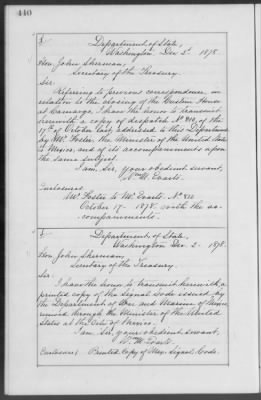 440
£
Department of State,
Washington Dec 2d 1878.
Hon. John Sherman,
Secretary of the Treasury.
Sir:
Referring to previous correspondence, in
relation to the closing of the Custom House
at Camargo, I have the honor to transmit
herewith a copy of despatch No 810, of the
17th of October last, addressed to this Department
by Mr. Foster, the Minister of the United States
to Mexico, and of its accompaniments upon
the same subject.
I am, Sir, your obedient servant,
Wm M. Evarts.
Enclosures
Mr. Foster to Mr. Evarts. No 810
October 17- 1878 with the ac-
companiments.
£
Department of State,
Washington Dec 2- 1878.
Hon John Sherman,
Secretary of the Treasury.
Sir:
I have the honor to transmit herewith, a
printed copy of the signal code issued by
the Department of War and Marine of Mexico
received through the Minister of the United
States at the City of Mexico.
I am, Sir, your obedient servant,
Wm M. Evarts.
Enclosure: Printed Copy of Mex. Signal Code.